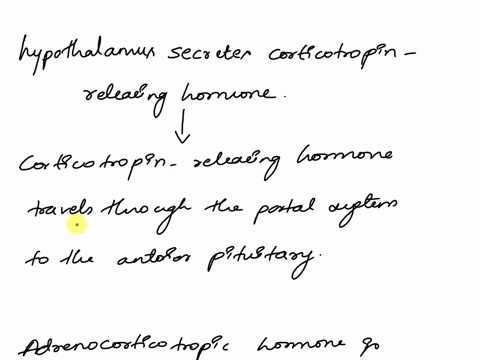 hypothalamus secretes corticotropin -
releasing hormone.
Corticotropin - releasing hormone
travels through the portal system
to the anterior pituitary.
Adrenocorticotropic hormone go